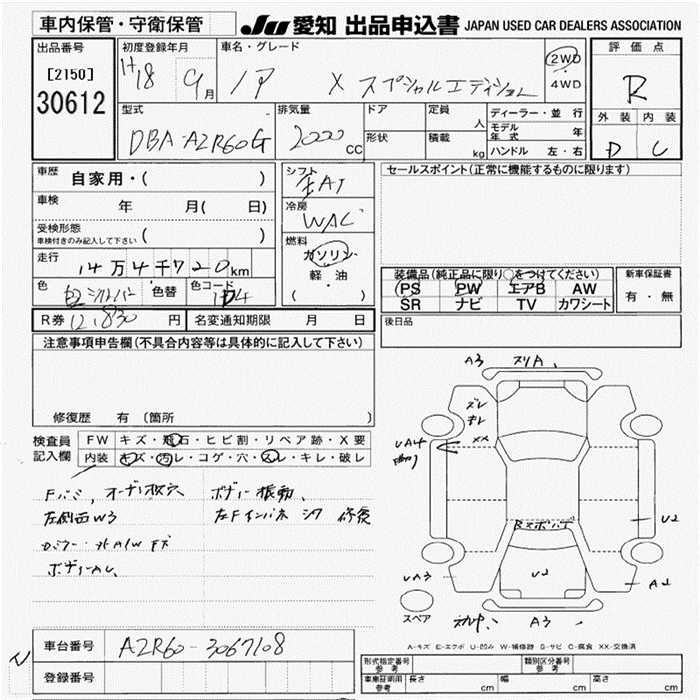 車内保管・守衛保管
JU 愛知 出品申込書 JAPAN USED CAR DEALERS ASSOCIATION
出品番号 初度登録年月 車名・グレード 評価点
[2150] H18 9月 ノア X スペシャルエディション 2WD・4WD R
30612
型式 排気量 ドア 定員 人 ディーラー・並行 外装 内装
DBA-AZR60G 2000cc 形状 積載 kg モデル年式 年 D C
ハンドル 左・右
車歴 自家用・( ) シフト AT セールスポイント(正常に機能するものに限ります)
車検 年 月( 日) 冷房 WAC
受検形態 ( )
車検付きのみ記入して下さい
燃料 ガソリン・軽油 ( )
走行 14万4千720km
装備品(純正品に限り○をつけてください) 新車保証書
色 シルバー 色替 色コード 1D4 PS PW エアB AW 有・無
SR ナビ TV カワシート
R券 12,830円 名変通知期限 月 日 後日品
注意事項申告欄(不具合内容等は具体的に記入して下さい)
修復歴 有 〔箇所
検査員記入欄 FW キズ・飛石・ヒビ割・リペア跡・X要
内装 キズ・汚レ・コゲ・穴・スレ・キレ・破レ
オーディオ枚穴 ボデー振動、
左側面W3 左Fインパネ 修復
A3 スリA、
ズレ
キレ
XX
UA4
U2
U2
UA3
A2
スペア A3
A-キズ E-エクボ U-凹み W-補修跡 S-サビ C-腐食 XX-交換済
車台番号 AZR60-3067108
登録番号
形式指定番号 参考 類別区分番号 参考
車庫証明用 参考 長さ cm 幅 cm 高さ cm